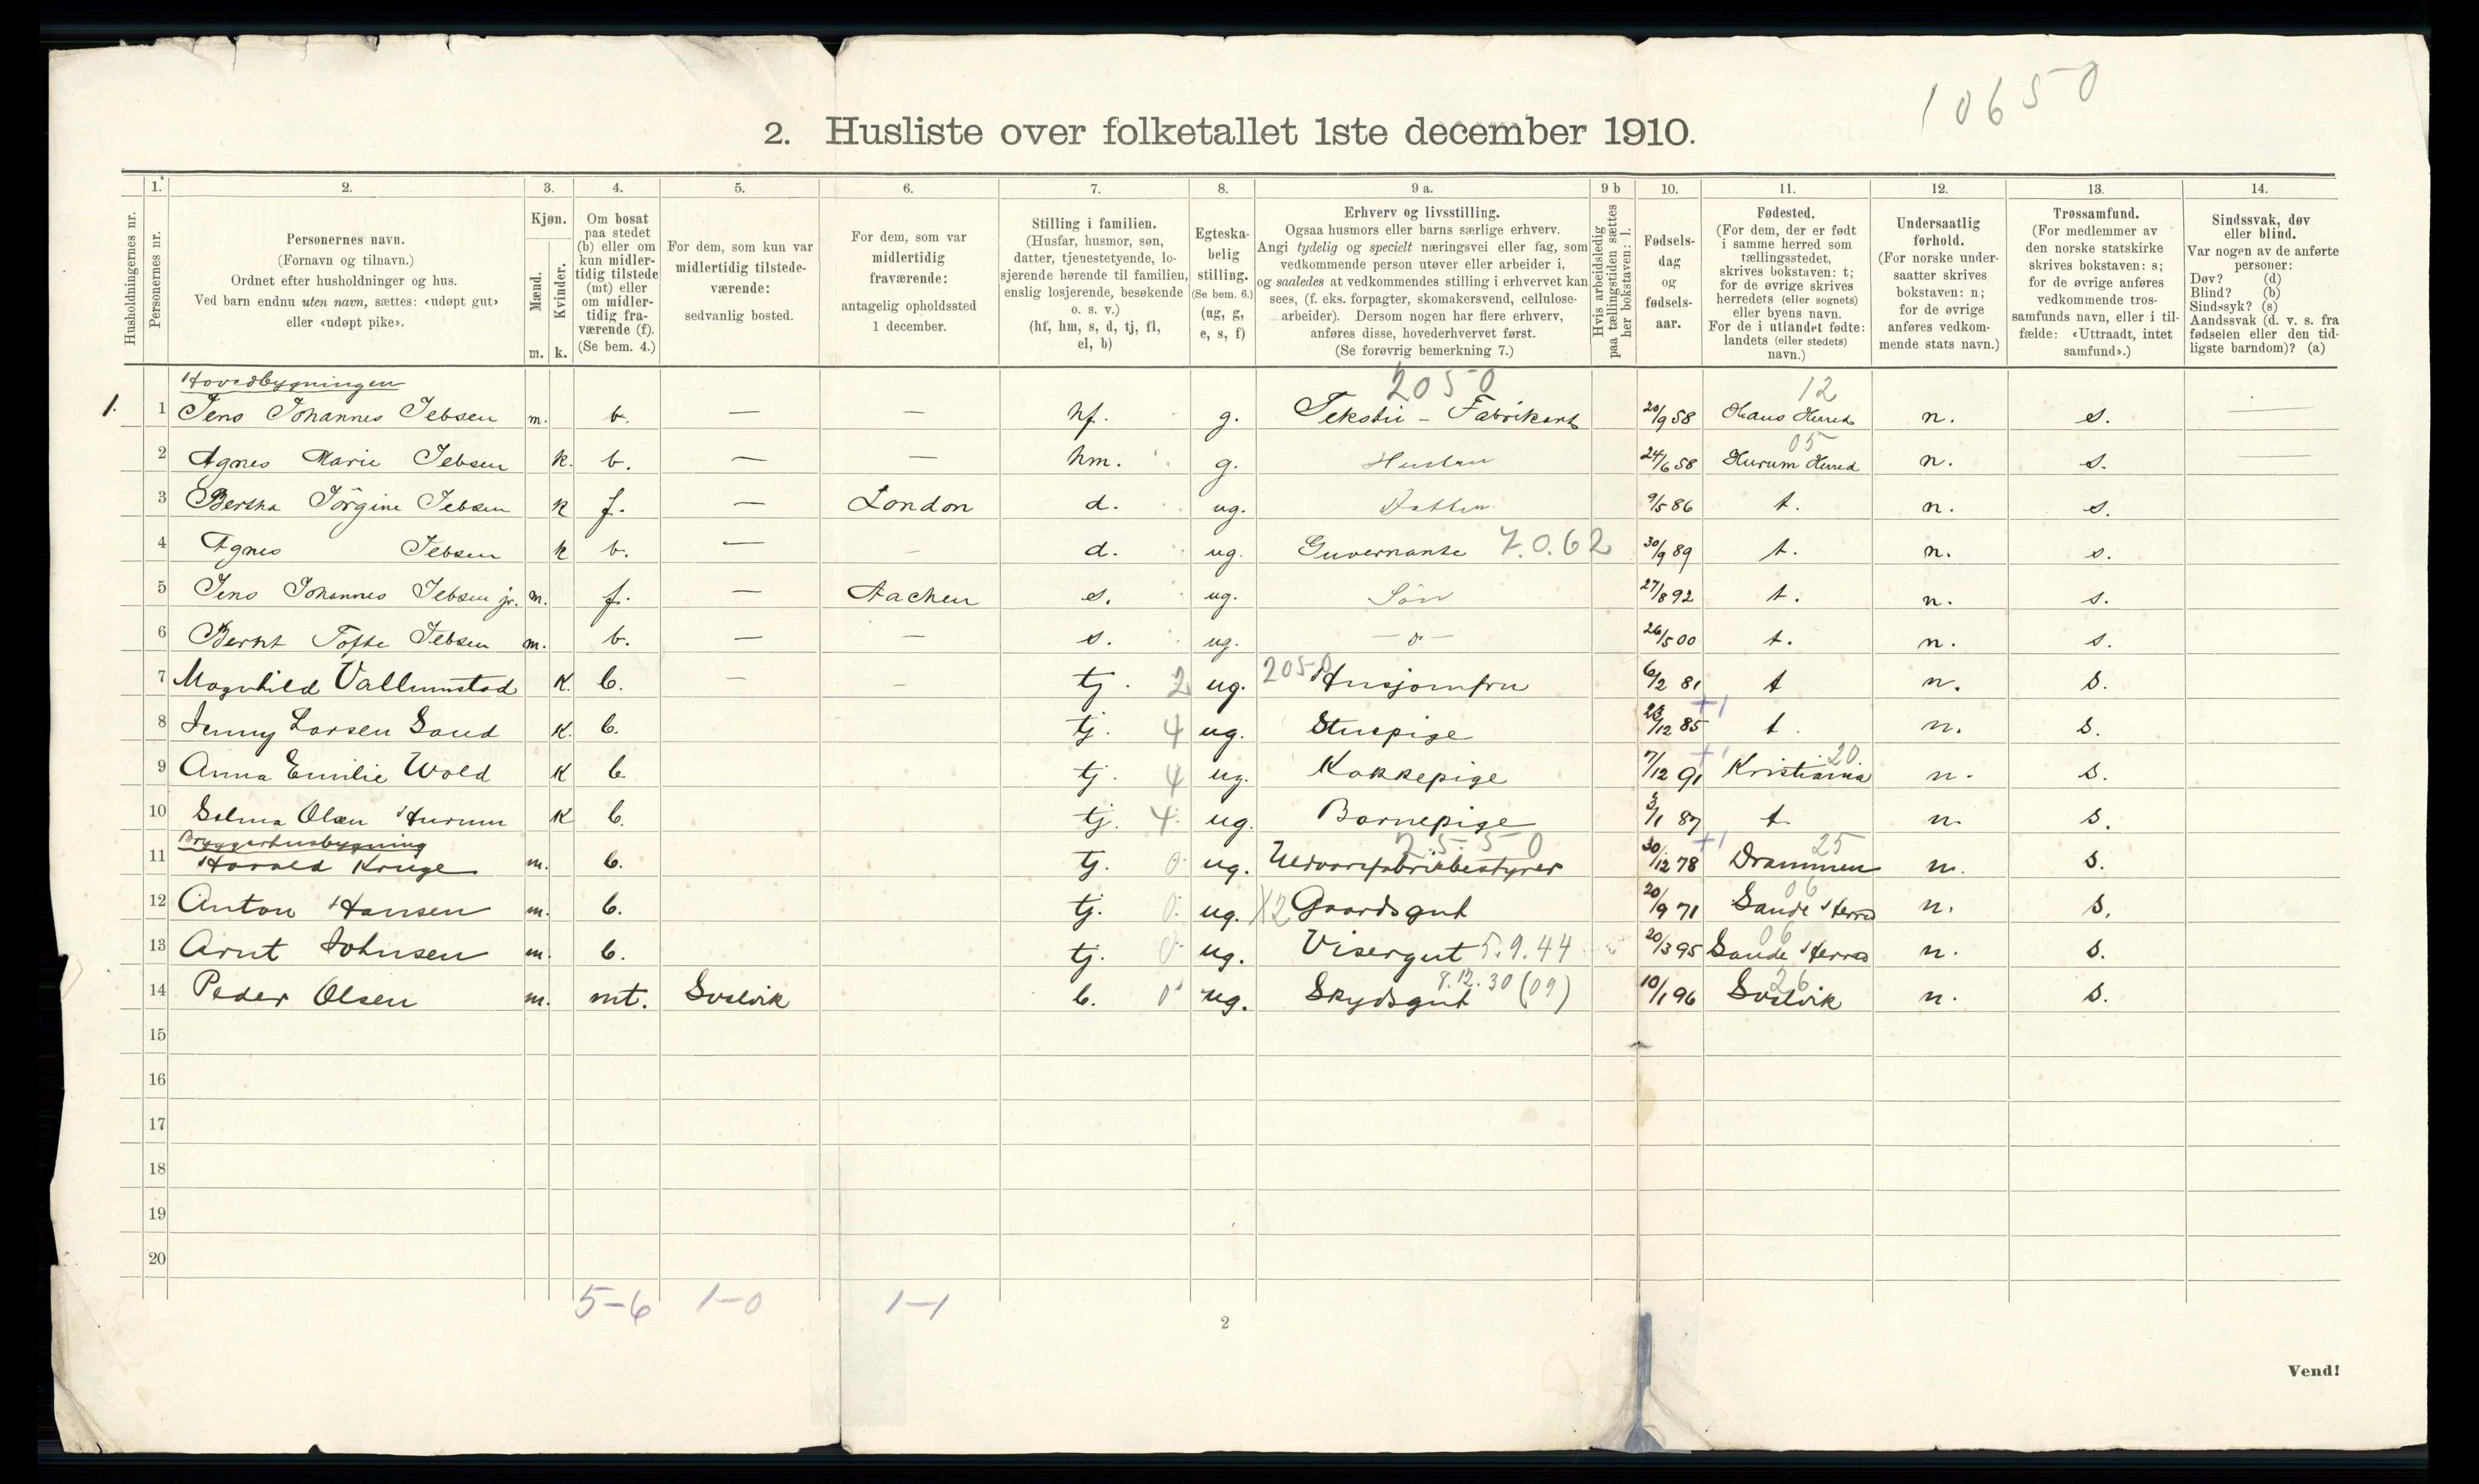 10650
2. Husliste over folketallet 1ste december 1910.
Husholdningernes nr.
1.
Personernes nr.
2.
Personernes navn.
(Fornavn og tilnavn.)
Ordnet efter husholdninger og hus.
Ved barn endnu uten navn, sættes: «udøpt gut»
eller «udøpt pike».
3.
Kjøn.
Mænd.
Kvinder.
m. k.
4.
Om bosat
paa stedet
(b) eller om
kun midler-
tidig tilstede
(mt) eller
om midler-
tidig fra-
værende (f).
(Se bem. 4.)
5.
For dem, som kun var
midlertidig tilstede-
værende:
sedvanlig bosted.
6.
For dem, som var
midlertidig
fraværende:
antagelig opholdssted
1 december.
7.
Stilling i familien.
(Husfar, husmor, søn,
datter, tjenestetyende, lo-
sjerende hørende til familien,
enslig losjerende, besøkende
o. s. v.)
(hf, hm, s, d, tj, fl,
el, b)
8.
Egteska-
belig
stilling.
(Se bem. 6.)
(ug, g,
e, s, f)
9 a.
Erhverv og livsstilling.
Ogsaa husmors eller barns særlige erhverv.
Angi tydelig og specielt næringsvei eller fag, som
vedkommende person utøver eller arbeider i,
og saaledes at vedkommendes stilling i erhvervet kan
sees, (f. eks. forpagter, skomakersvend, cellulose-
arbeider). Dersom nogen har flere erhverv,
anføres disse, hovederhvervet først.
(Se forøvrig bemerkning 7.)
9 b
Hvis arbeidsledig
paa tællingstiden sættes
her bokstaven: l.
10.
Fødsels-
dag
og
fødsels-
aar.
11.
Fødested.
(For dem, der er født
i samme herred som
tællingsstedet,
skrives bokstaven: t;
for de øvrige skrives
herredets (eller sognets)
eller byens navn.
For de i utlandet fødte:
landets (eller stedets)
navn.)
12.
Undersaatlig
forhold.
(For norske under-
saatter skrives
bokstaven: n;
for de øvrige
anføres vedkom-
mende stats navn.)
13.
Trossamfund.
(For medlemmer av
den norske statskirke
skrives bokstaven: s;
for de øvrige anføres
vedkommende tros-
samfunds navn, eller i til-
fælde: «Uttraadt, intet
samfund».)
14.
Sindssvak, døv
eller blind.
Var nogen av de anførte
personer:
Døv? (d)
Blind? (b)
Sindssyk? (s)
Aandssvak (d. v. s. fra
fødselen eller den tid-
ligste barndom)? (a)
Hovedbygningen 2050 12
1. 1 Jens Johannes Jebsen m. b. — — hf. g. Tekstil - Fabrikant 20/9 58 Haus Herred n. s. —
05
2 Agnes Marie Jebsen k. b. — — hm. g. Hustru 24/6 58 Hurum Herred n. s. —
3 Bertha Jörgine Jebsen k f. — London d. ug. Datter 9/5 86 t. n. s.
4 Agnes Jebsen k b. — — d. ug. Guvernante 7.0.62 30/9 89 t. n. s.
5 Jens Johannes Jebsen jr. m. f. — Aachen s. ug. Sön 27/8 92 t. n. s.
6 Bernt Tofte Jebsen m. b. — — s. ug. — " — 26/5 00 t. n. s.
7 Magnhild Vallumstad K. b. — — tj. 2 ug. 2050 Husjomfru 6/2 81 t n. s.
8 Jenny Larsen Sand K. b. tj. 4 ug. Stuepige 23/12 85 +1 t. n. s.
9 Anna Emilie Wold K b. tj. 4 ug. Kokkepige 7/12 91 +1 Kristiania 20. n. s.
10 Selma Olsen Hurum K b. tj. 4. ug. Barnepige 3/1 87 t. n. s.
Bryggerhusbygning 25.50 25
11 Harald Kruge m. b. tj. 0 ug. Uldvarefabrikbestyrer 30/12 78 +1 Drammen n. s.
06
12 Anton Hansen m. b. tj. 0. ug. X2 Gaardsgut 20/9 71 Sande Herred n. s.
06
13 Arnt Johnsen m. b. tj. 0 ug. Visergut 5.9.44 20/3 95 Sande Herred n. s.
8.12.30 (09) 26
14 Peder Olsen m. mt. Svelvik b. 0 ug. Skydsgut 10/1 96 Svelvik n. s.
15
16
17
18
19
20
5-6 1-0 1-1
2
Vend!